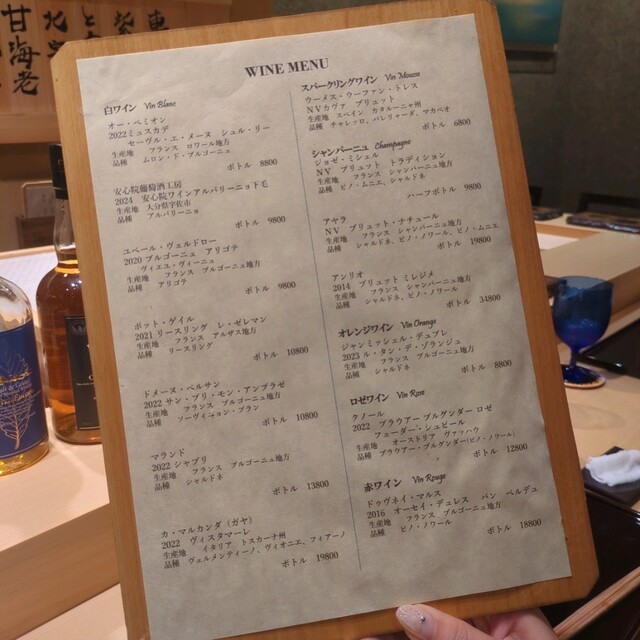 WINE MENU
白ワイン Vin Blanc
オー・ペミオン
2022ミュスカデ
セーヴル・エ・メーヌ シュル・リー
生産地 フランス ロワール地方
品種 ムロン・ド・ブルゴーニュ
ボトル 8800
安心院葡萄酒工房
2024 安心院ワインアルバリーニョ下毛
生産地 大分県宇佐市
品種 アルバリーニョ
ボトル 9800
ユベール・ヴェルドロー
2020 ブルゴーニュ アリゴテ
ヴィエイユ・ヴィーニュ
生産地 フランス ブルゴーニュ地方
品種 アリゴテ
ボトル 9800
ボット・ゲイル
2021 リースリング レ・ゼレマン
生産地 フランス アルザス地方
品種 リースリング
ボトル 10800
ドメーヌ・ベルサン
2022 サン・ブリ・モン・アンブラゼ
生産地 フランス ブルゴーニュ地方
品種 ソーヴィニヨン・ブラン
ボトル 10800
マランド
2022 シャブリ
生産地 フランス ブルゴーニュ地方
品種 シャルドネ
ボトル 13800
カ・マルカンダ（ガヤ）
2022 ヴィスタマーレ
生産地 イタリア トスカーナ州
品種 ヴェルメンティーノ、ヴィオニエ、フィアーノ
ボトル 19800
スパークリングワイン Vin Mousse
ウーメス・ウーファン・トレス
NV カヴァ ブリュット
生産地 スペイン カタルーニャ州
品種 チャレッロ、パレリャーダ、マカベオ
ボトル 6800
シャンパーニュ Champagne
ジョゼ・ミシェル
NV ブリュット トラディション
生産地 フランス シャンパーニュ地方
品種 ピノ・ムニエ、シャルドネ
ハーフボトル 9800
アヤラ
NV ブリュット・ナチュール
生産地 フランス シャンパーニュ地方
品種 シャルドネ、ピノ・ノワール、ピノ・ムニエ
ボトル 19800
アンリオ
2014 ブリュット ミレジメ
生産地 フランス シャンパーニュ地方
品種 シャルドネ、ピノ・ノワール
ボトル 34800
オレンジワイン Vin Orange
ジャンミッシェル・デュプレ
2023 ル・タン・デ・ゾランジュ
生産地 フランス ブルゴーニュ地方
品種 シャルドネ
ボトル 8800
ロゼワイン Vin Rose
クノール
2022 ブラウアー ブルグンダー ロゼ
フェーダー・シュピール
生産地 オーストリア ヴァッハウ
品種 ブラウアー・ブルグンダー(ピノ・ノワール)
ボトル 12800
赤ワイン Vin Rouge
ドゥヴネイ・マルス
2016 オーセイ・デュレス バン ベルデュ
生産地 フランス、ブルゴーニュ地方
品種 ピノ・ノワール
ボトル 18800
甘海老
北
と
紫
東